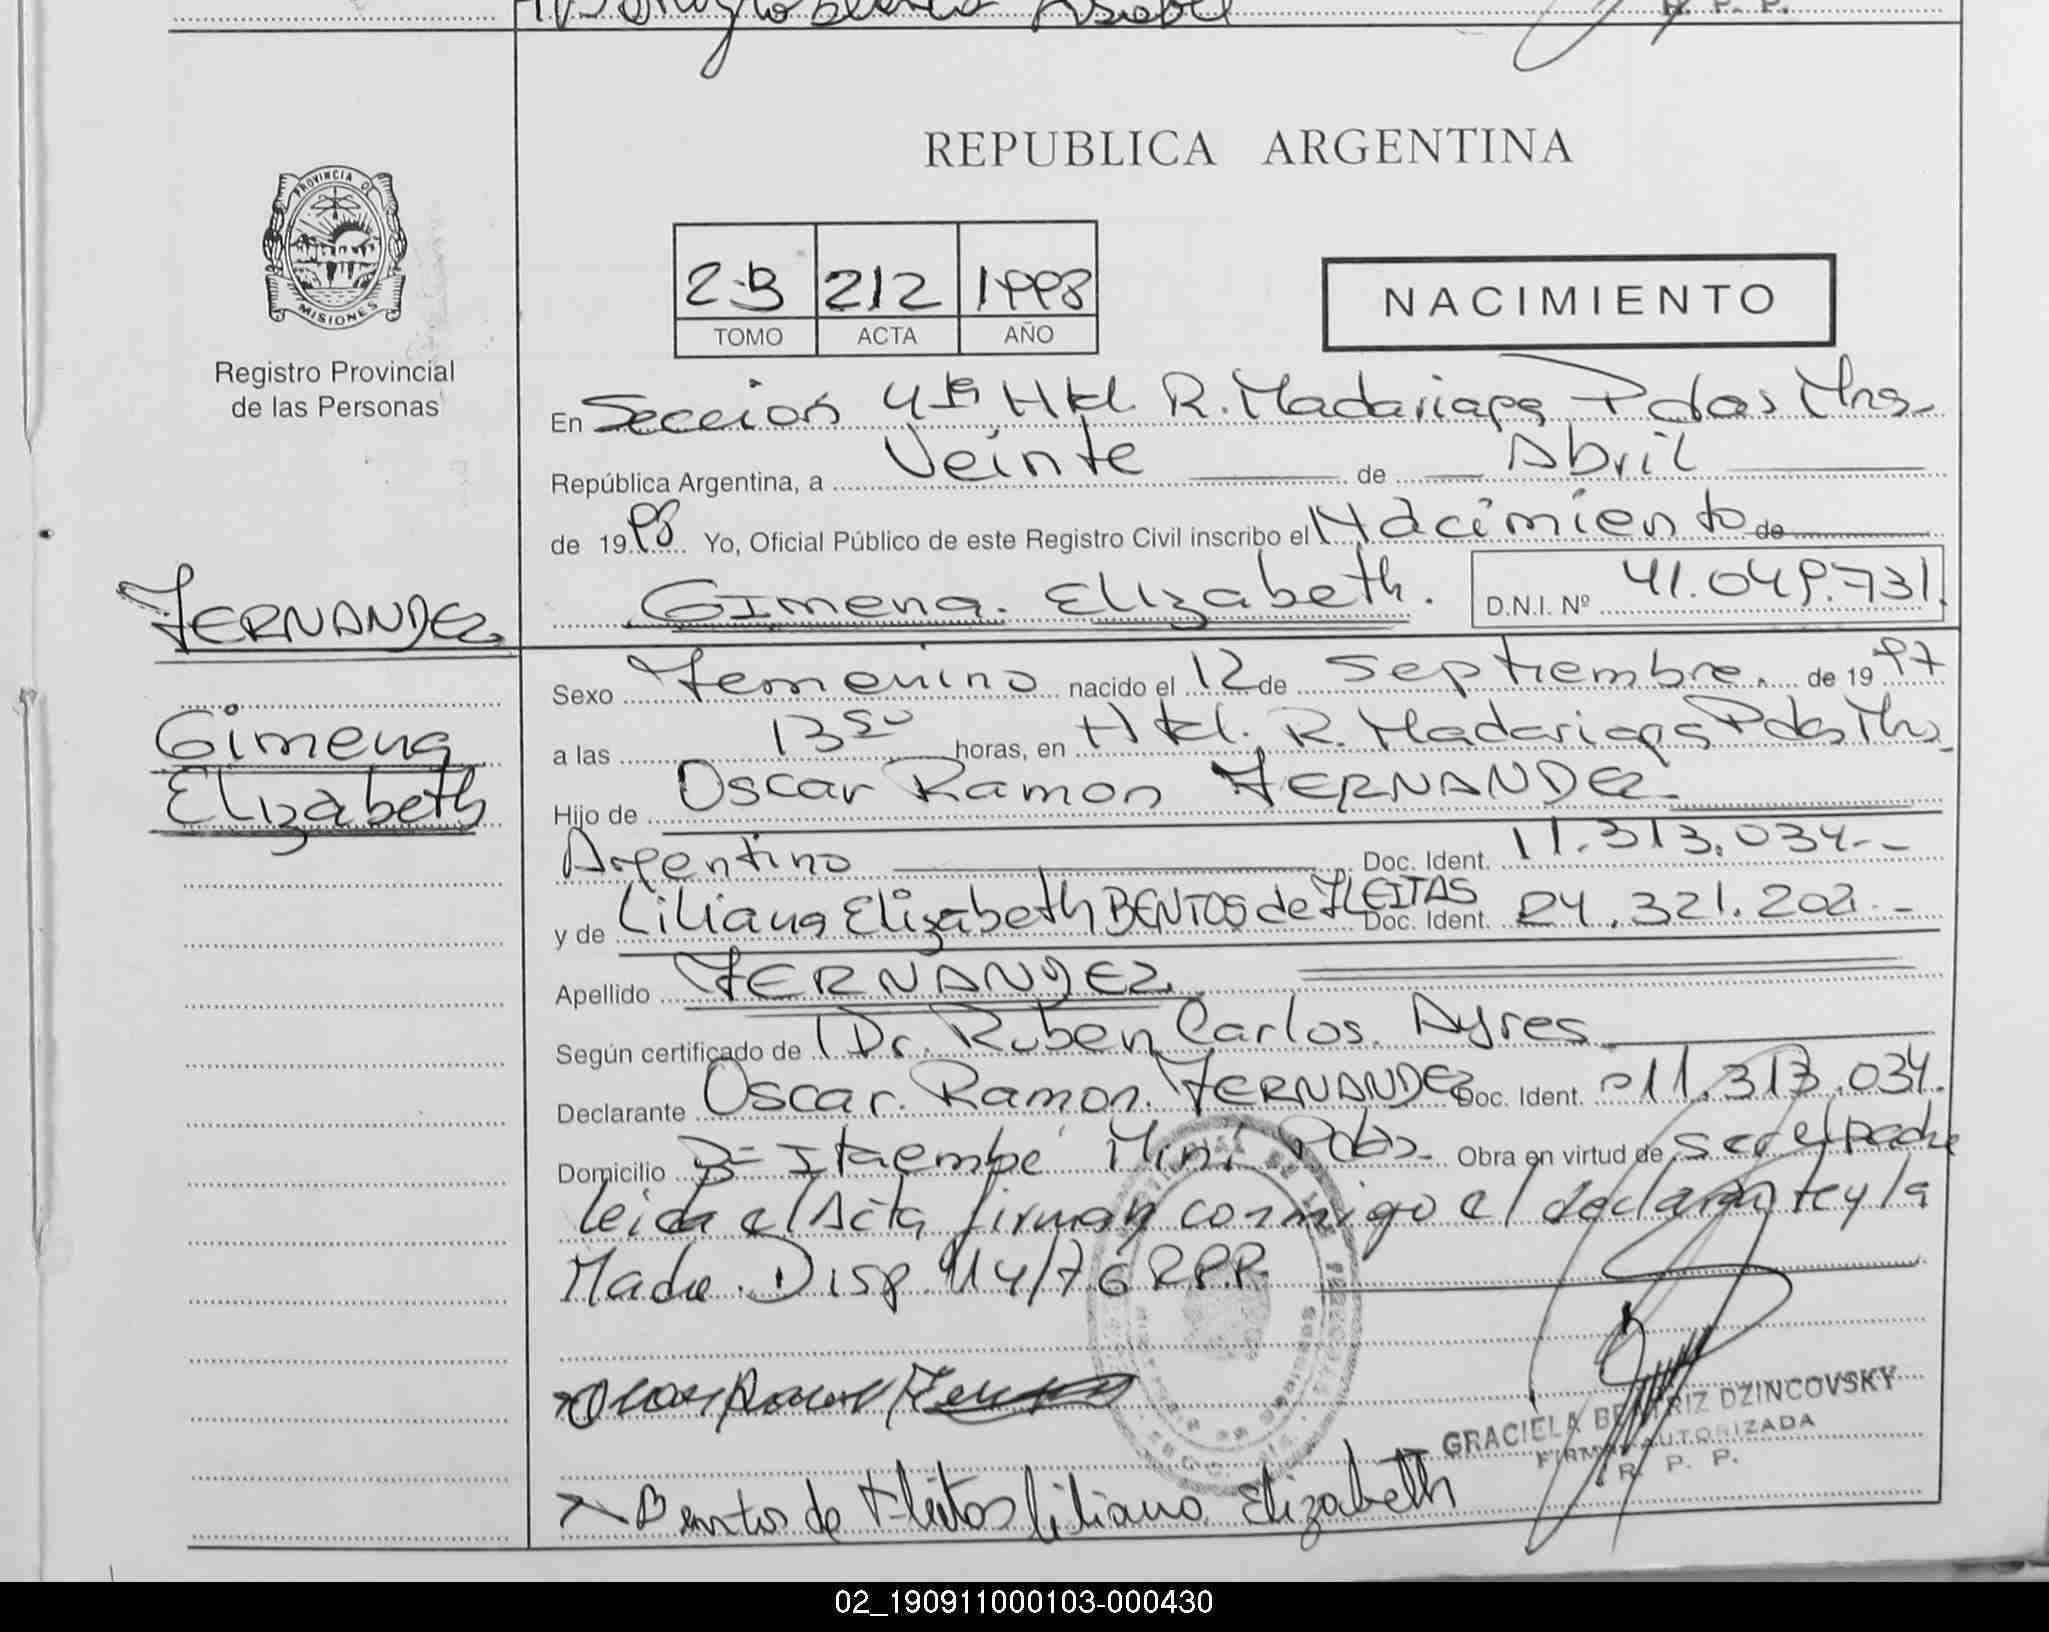 REPUBLICA ARGENTINA
PROVINCIA DE
MISIONES
Registro Provincial
de las Personas
2-B 212 1998
TOMO ACTA AÑO
NACIMIENTO
En Sección 4ta Htal. R. Madariaga Pdas Mns.
República Argentina, a Veinte de Abril
de 1998 Yo, Oficial Público de este Registro Civil inscribo el Nacimiento de
Gimena. Elizabeth. D.N.I. Nº 41.049.731.
FERNANDEZ
Gimena
Elizabeth
Sexo Femenino nacido el 12 de Septiembre. de 1997
a las 13 50 horas, en Htal. R. Madariaga Pdas Mns.
Hijo de Oscar Ramon FERNANDEZ
Argentino Doc. Ident. 11.313.034.-
y de Liliana Elizabeth BENTOS de FLEITAS Doc. Ident. 24.321.202.-
Apellido FERNANDEZ
Según certificado de Dr. Ruben Carlos. Ayres
Declarante Oscar. Ramon. FERNANDEZ Doc. Ident. 11.313.034.
Domicilio B= Itaembé Mini Pdas. Obra en virtud de ser el padre
leida el Acta firman conmigo el declarante y la
Madre. Disp. 114/76 R.P.P.
Bentos de Fleitas Liliana Elizabeth
GRACIELA BEATRIZ DZINCOVSKY
FIRMA AUTORIZADA
R. P. P.
02_190911000103-000430